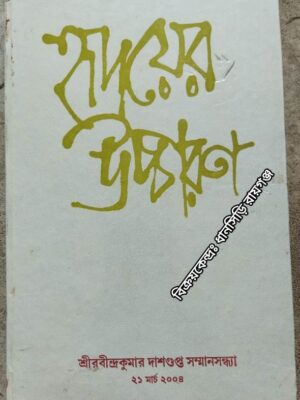 হৃদয়ের
উচ্চারণ
বিক্রয়কেন্দ্রঃ ধানসিড়ি রায়গঞ্জ
শ্রীরবীন্দ্রকুমার দাশগুপ্ত সম্মানসন্ধ্যা
২১ মার্চ ২০০৪